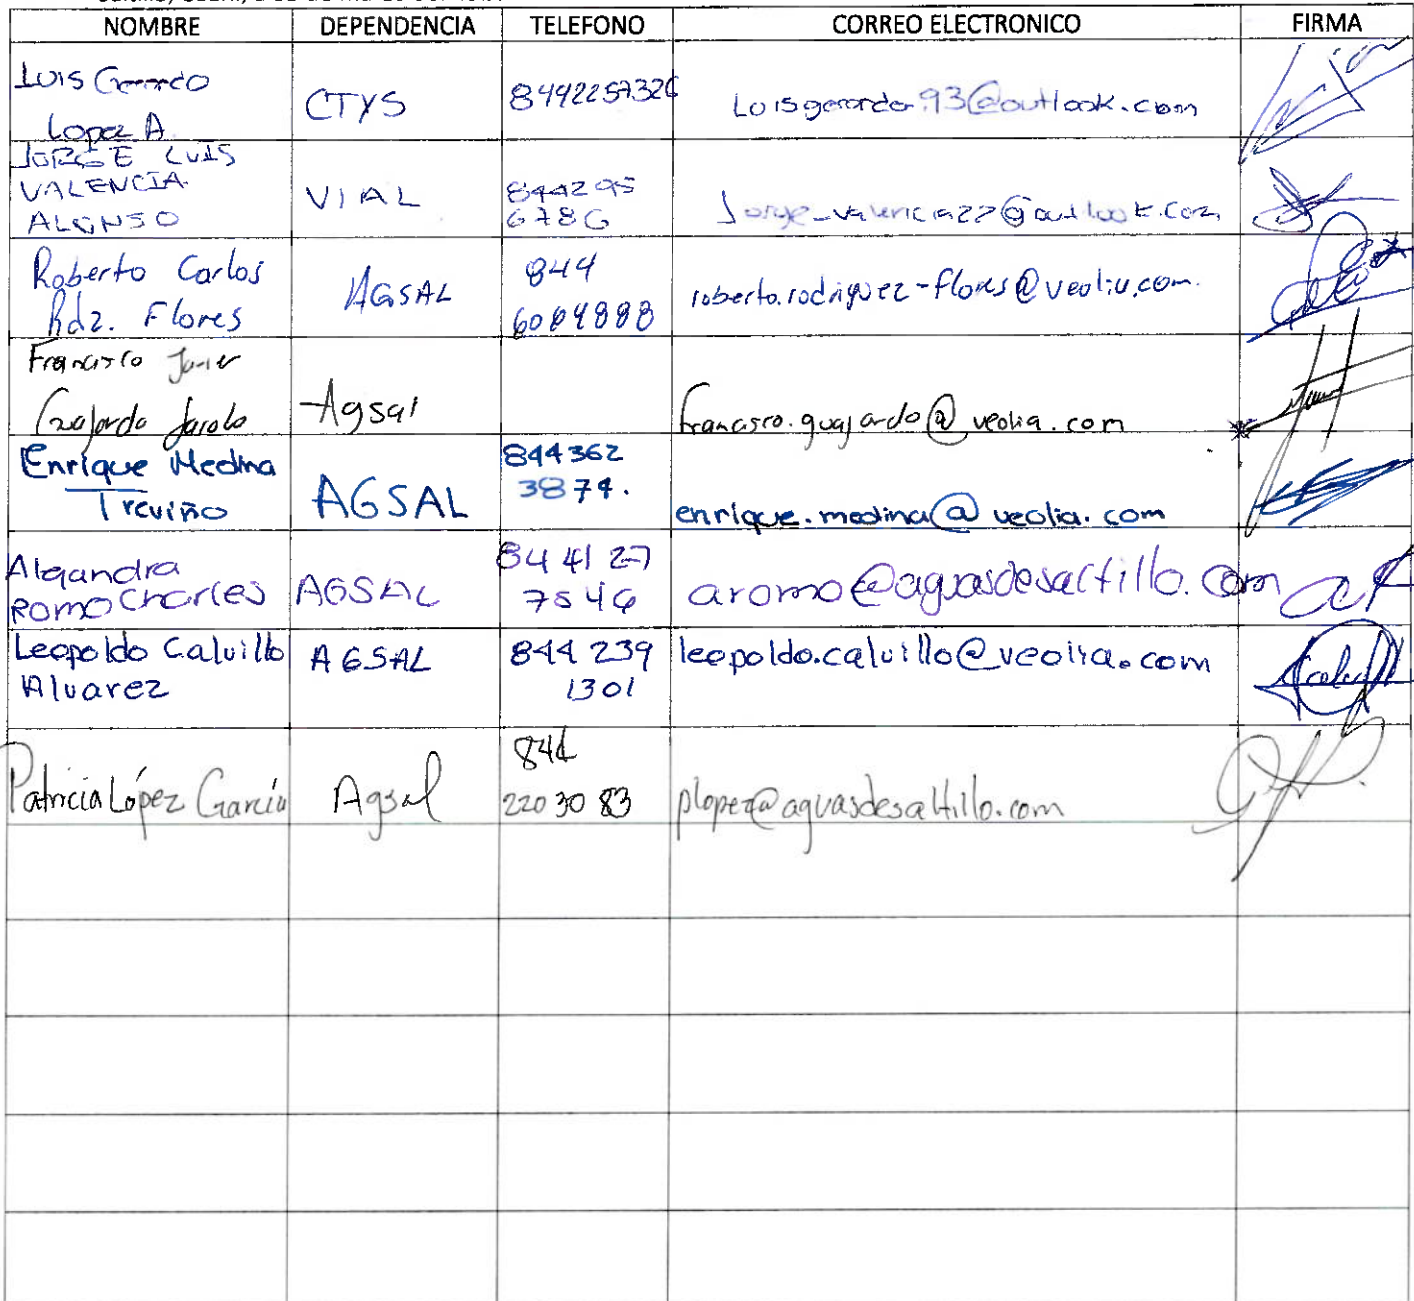 NOMBRE DEPENDENCIA TELEFONO CORREO ELECTRONICO FIRMA
Luis Gerardo
Lopez A CTYS 8442257326
JORGE LUIS
VALENCIA
ALONSO VIAL 844295
6786
Roberto Carlos
Rdz. Flores AGSAL 844
6004888 roberto.rodriguez-flores@veolia.com.
Francisco Javier
Guajardo Agsal francisco.guajardo@veolia.com
Enrique Medina
Treviño AGSAL 844362
3874. enrique.medina@veolia.com
Alejandra
Romo Charles AGSAL 844127
7546 aromo@aguasdesaltillo.com
Leopoldo Calvillo
Alvarez AGSAL 844 239
1301 leopoldo.calvillo@veolia.com
Patricia López García Agsal 844
220 30 83 plopez@aguasdesaltillo.com